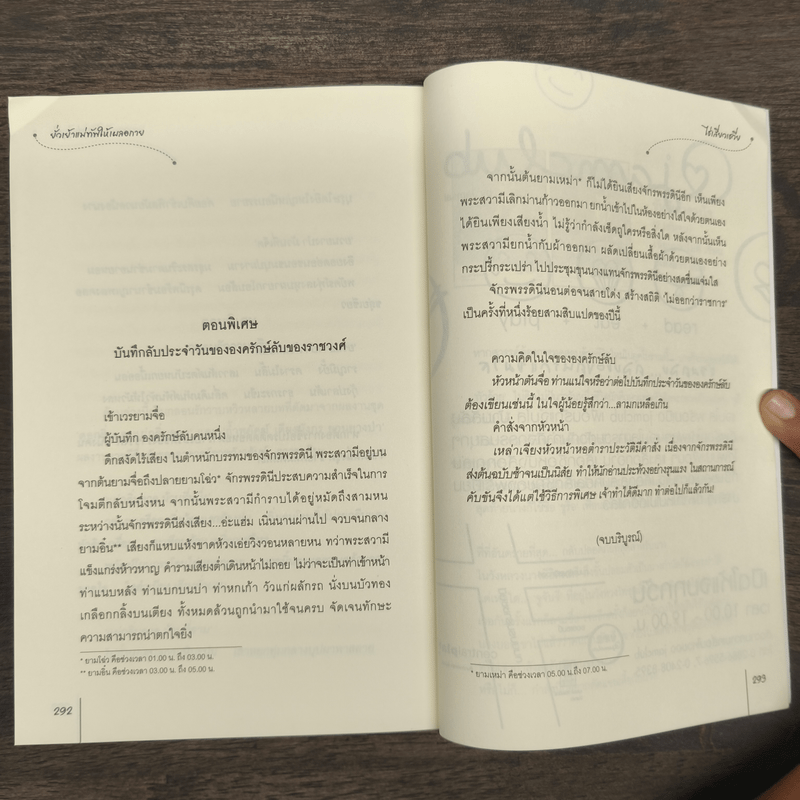 ยั่วเย้าแม่ทัพให้เผลอกาย
ตอนพิเศษ
บันทึกลับประจำวันขององครักษ์ลับของราชวงศ์
เข้าเวรยามจื่อ
ผู้บันทึก องครักษ์ลับคนหนึ่ง
ดึกสงัดไร้เสียง ในตำหนักบรรทมของจักรพรรดินี พระสวามีอยู่บน
จากต้นยามจื่อถึงปลายยามโฉ่ว* จักรพรรดินีประสบความสำเร็จในการ
โจมตีกลับหนึ่งหน จากนั้นพระสวามีกำราบได้อยู่หมัดถึงสามหน
ระหว่างนั้นจักรพรรดินีส่งเสียง...อ่ะแฮ่ม เนิ่นนานผ่านไป จวบจนกลาง
ยามอิ๋น** เสียงก็แหบแห้งขาดห้วงเอ่ยวิงวอนหลายหน ทว่าพระสวามี
แข็งแกร่งห้าวหาญ คำรามเสียงต่ำเดินหน้าไม่ถอย ไม่ว่าจะเป็นท่าเข้าหน้า
ท่าแนบหลัง ท่าแบกบนบ่า ท่าหกเก้า วัวแก่ผลักรถ นั่งบนบัวทอง
เกลือกกลิ้งบนเตียง ทั้งหมดล้วนถูกนำมาใช้จนครบ จัดเจนทักษะ
ความสามารถน่าตกใจยิ่ง
* ยามโฉ่ว คือช่วงเวลา 01.00 น. ถึง 03.00 น.
** ยามอิ๋น คือช่วงเวลา 03.00 น. ถึง 05.00 น.
292
ไต่เสี่ยวเตี๋ย
จากนั้นต้นยามเหม่า* ก็ไม่ได้ยินเสียงจักรพรรดินีอีก เห็นเพียง
พระสวามีเลิกม่านก้าวออกมา ยกน้ำเข้าไปในห้องอย่างใส่ใจด้วยตนเอง
ได้ยินเพียงเสียงน้ำ ไม่รู้ว่ากำลังเช็ดถูใครหรือสิ่งใด หลังจากนั้นเห็น
พระสวามียกน้ำกับผ้าออกมา ผลัดเปลี่ยนเสื้อผ้าด้วยตนเองอย่าง
กระปรี้กระเปร่า ไปประชุมขุนนางแทนจักรพรรดินีอย่างสดชื่นแจ่มใส
จักรพรรดินีนอนต่อจนสายโด่ง สร้างสถิติ 'ไม่ออกว่าราชการ'
เป็นครั้งที่หนึ่งร้อยสามสิบแปดของปีนี้
ความคิดในใจขององครักษ์ลับ
หัวหน้าตันจื่อ ท่านแน่ใจหรือว่าต่อไปบันทึกประจำวันขององครักษ์ลับ
ต้องเขียนเช่นนี้ ในใจผู้น้อยรู้สึกว่า...ลามกเหลือเกิน
คำสั่งจากหัวหน้า
เหล่าเจียงหัวหน้าหอตำราประวัติมีคำสั่ง เนื่องจากจักรพรรดินี
ส่งต้นฉบับช้าจนเป็นนิสัย ทำให้นักอ่านประท้วงอย่างรุนแรง ในสถานการณ์
คับขันจึงได้แต่ใช้วิธีการพิเศษ เจ้าทำได้ดีมาก ทำต่อไปก็แล้วกัน!
(จบบริบูรณ์)
* ยามเหม่า คือช่วงเวลา 05.00 น. ถึง 07.00 น.
293